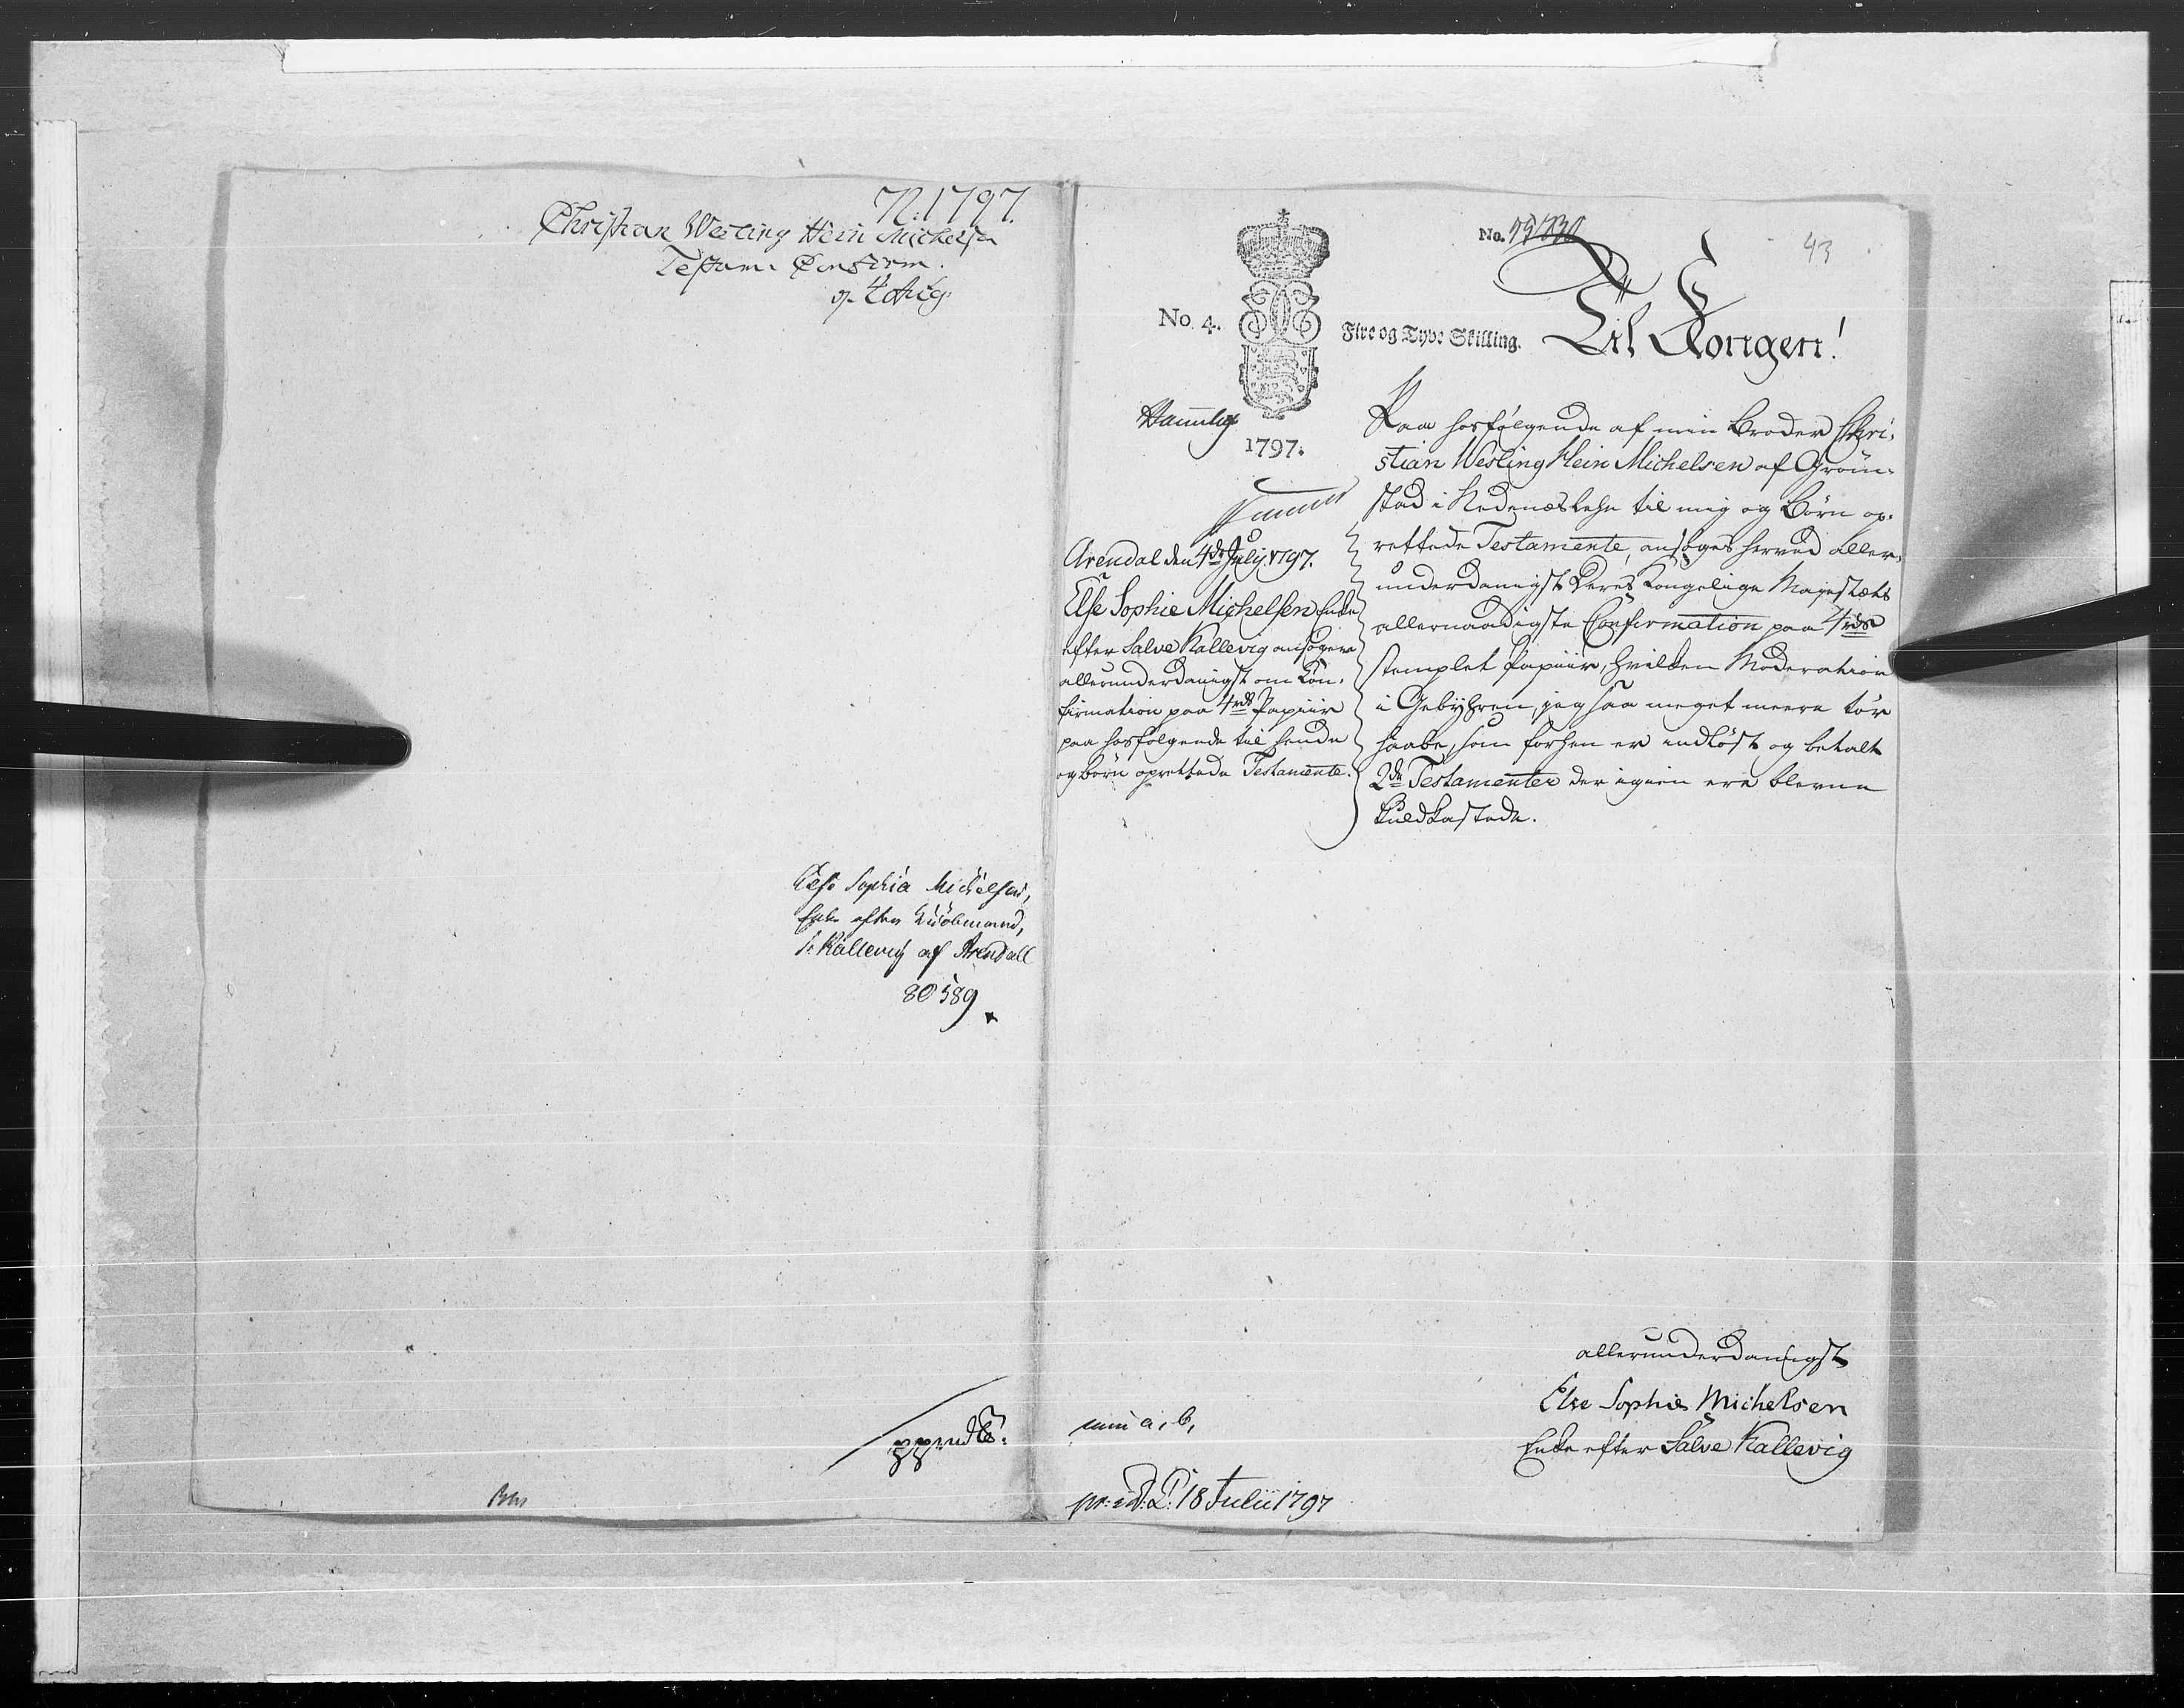 N. 1797.
Christian Wesling Hein Michelsen
Testam: Confirm.
4 Aug:
Else Sophia Michelsen,
Enke efter Kiöbmand,
S. Kallevig af Arendall
80589
No. 4.
Fire og Tyve Skilling.
1797.
No.
43
Til Kongen!
Arendal den 4de July 1797.
Else Sophie Michelsen Enke
efter Salve Kallevig ansøger
allerunderdanigst om Con-
firmation paa 4rds Papiir
paa hosfølgende til hende
og børn oprettede Testamente.
Paa hosfølgende af min Broder Chri-
stian Wesling Hein Michelsen af Gröm-
stad i Nedenæs Lehn til mig og Börn op-
rettede Testamente, ansøges herved aller-
underdanigst Deres Kongelige Majestæts
allernaadigste Confirmation paa 4rds
stemplet Papiir, hvilken Moderation
i Gebyhren, jeg saa meget meere tör
haabe, som forhen er indløst og betalt
2de Testamenter der igien ere blevne
kuldkastede.
allerunderdanigst
Else Sophie Michelsen
Enke efter Salve Kallevig
a, b,
18 Julii 1797